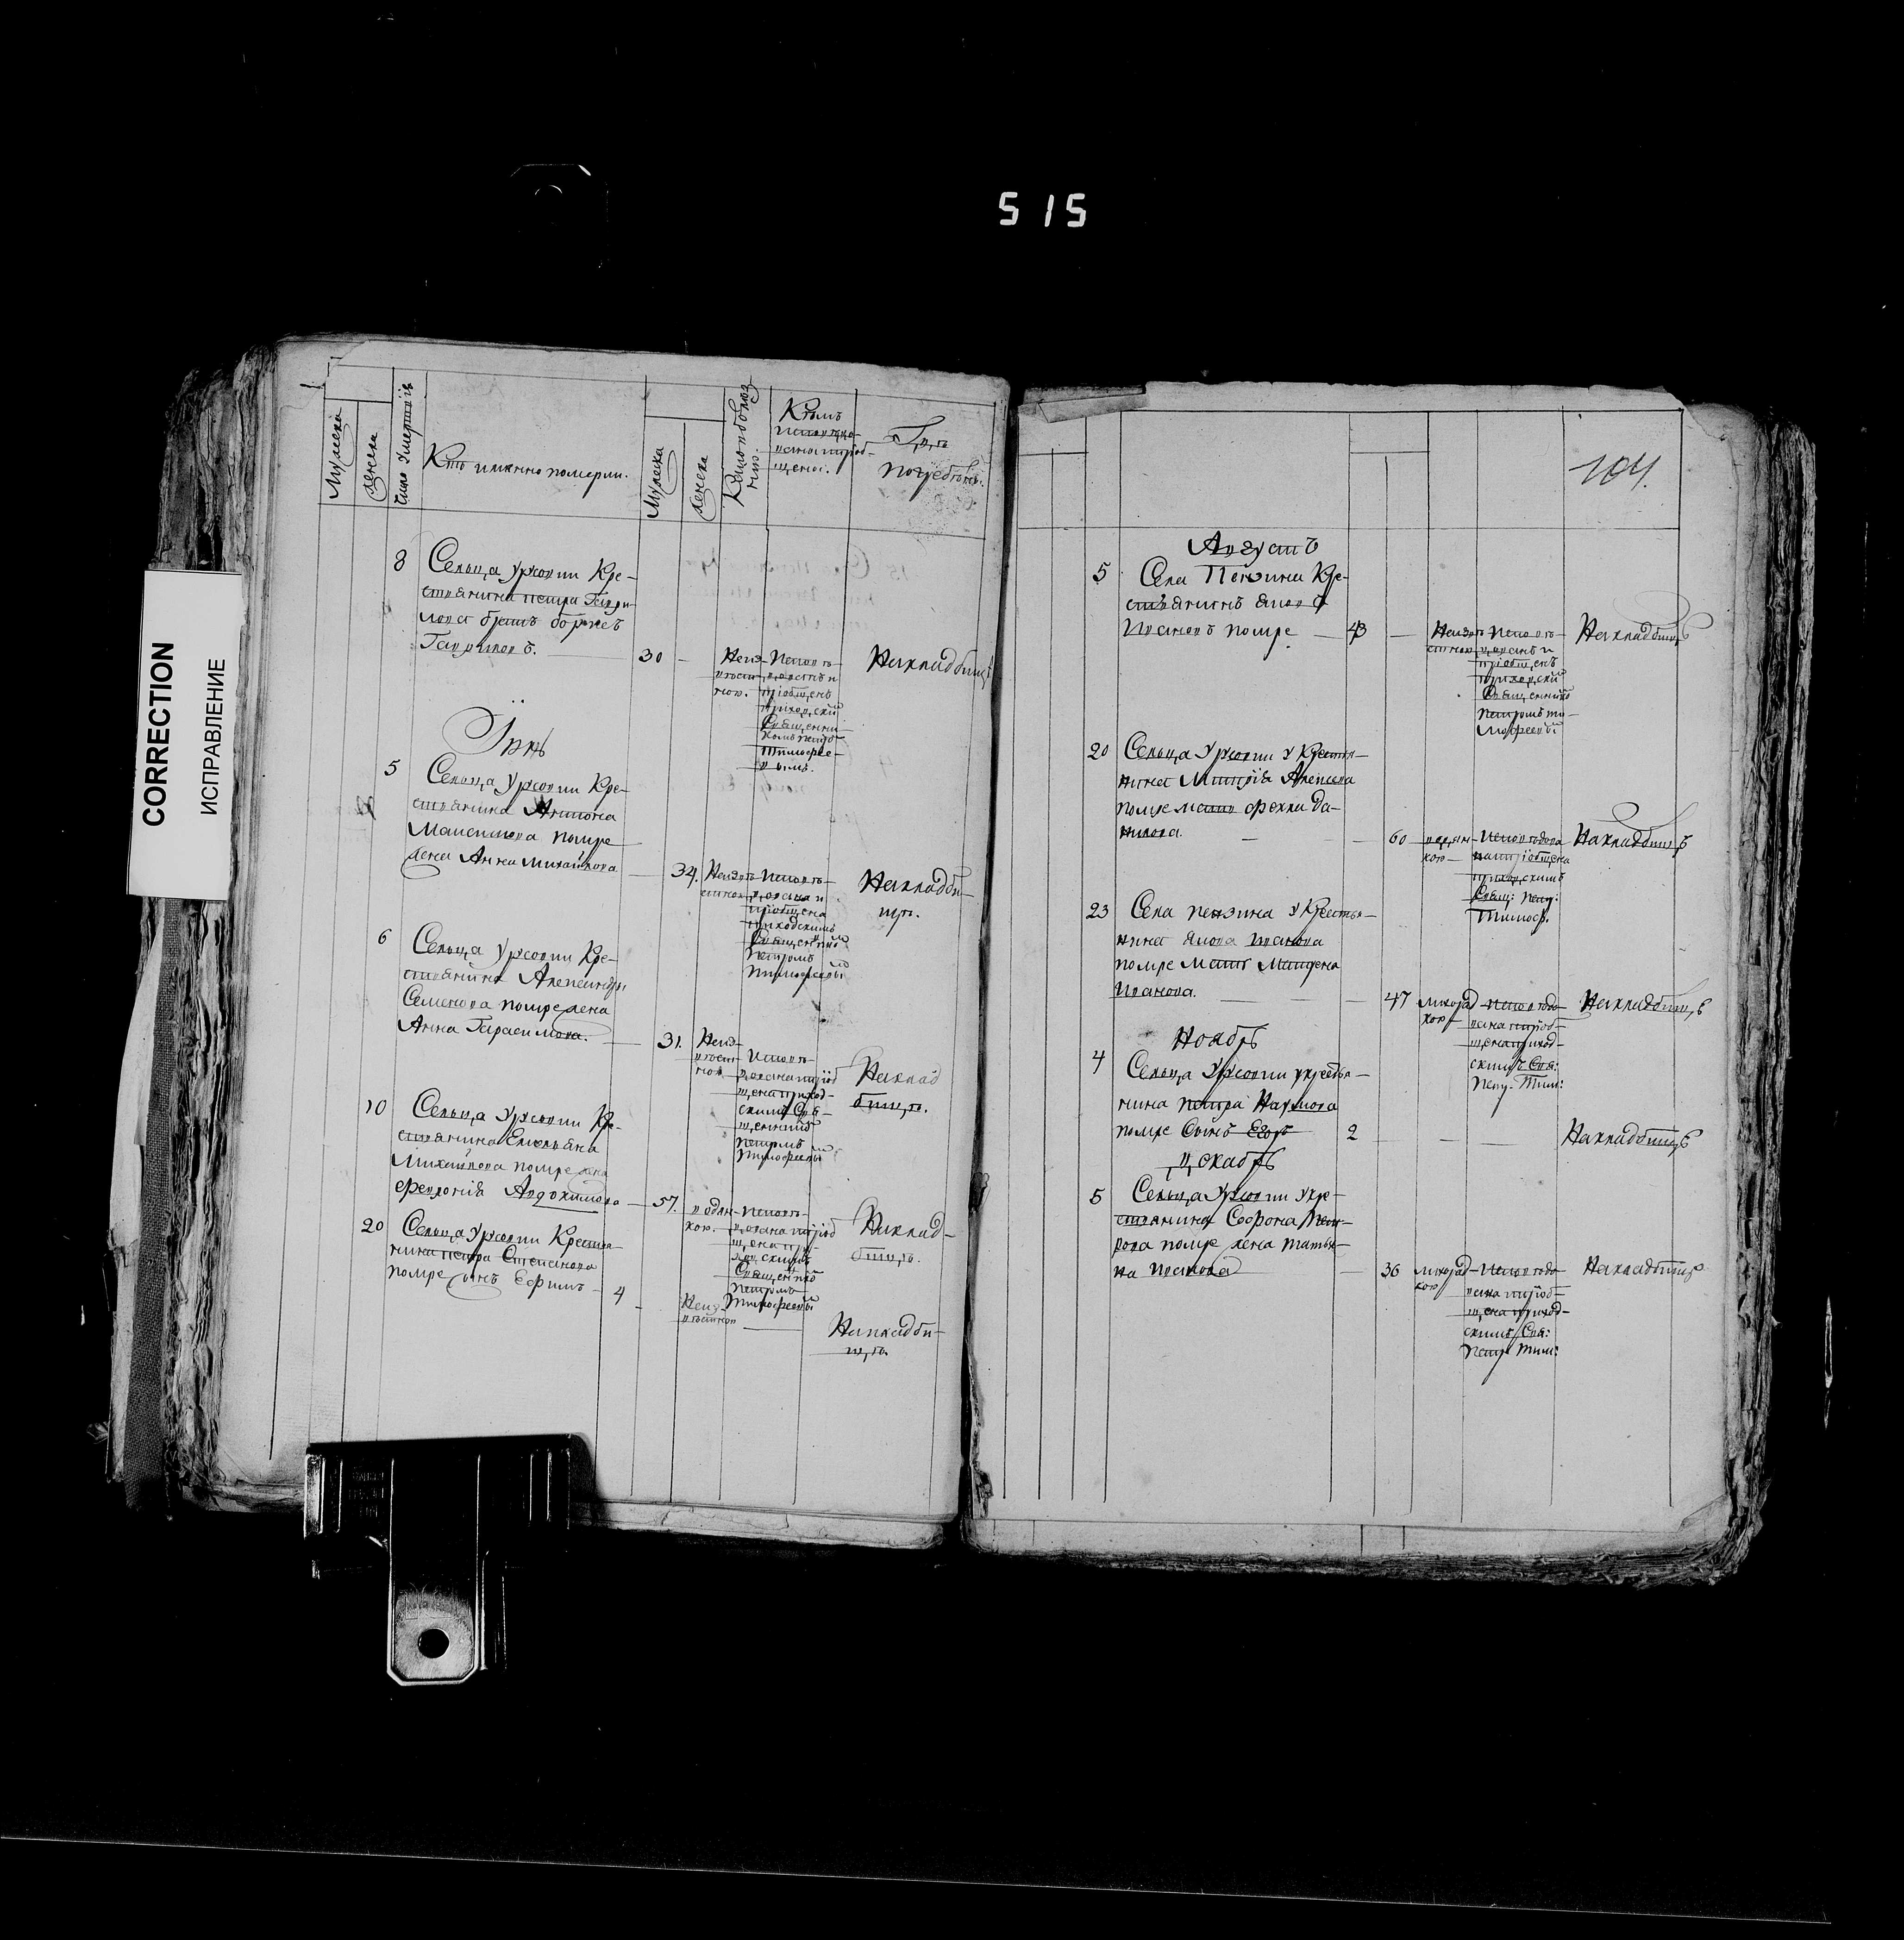 515
CORRECTION
ИСПРАВЛЕНИЕ
Мужеска
женска
Число Умертвій
Кто имянно померли.
Мужеска
женска
Какою болѣз
нію.
Кѣмъ
исповѣдо-
ваны и пріоб-
щены.
Гдѣ
погребены.
8
Сельца Урсовки Кре-
стьянина Петра Гаври-
лова братъ
Гавриловъ.
30
Неиз-
вѣст-
ною.
Исповѣ-
дыванъ и
пріобщенъ
приходскимъ
Священни-
комъ Петро
Тимофее-
вымъ.
На кладбищѣ
Іюнь
5
Сельца Урсовки Кре-
стьянина Антона
Максимова помре
жена Анна Михайлова
34.
Неизвѣ
стною
Исповѣ-
дована и
пріобщена
приходскимъ
Священнико
Петромъ
Тимофеевы
На кладби-
щѣ.
6
Сельца Урсовки Кре-
стьянина Александры
Семенова помре жена
Анна Гарасимова.
31.
Неиз-
вѣст-
ною
Исповѣ-
дована и пріоб
щена приход-
скимъ Свя-
щенникомъ
Петромъ
Тимофеевы
На клад
бищѣ.
10
Сельца Урсовки Кре-
стьянина Емельяна
Михайлова помре жена
Февронія Авдокимова
57.
водян-
кою.
Исповѣ-
дована и пріоб
щена при-
ход скимъ
Священнико
Петромъ
Тимофеевы
На клад-
бищѣ.
20
Сельца Урсовки Крестья
нина Петра Степанова
помре сынъ Ефимъ
4
Неиз-
вѣстною
На кладби-
щѣ.
104.
Августъ
5
Села Пензина Кре-
стьянинъ Яковъ
Ивановъ помре
43
Неизвѣ
стною
Исповѣ-
дованъ и
пріобщенъ
приходски
Священнико
Петромъ ти-
мофеевы
На кладбищѣ
20
Сельца Урсовки у Крестья-
нина Митрія Алексева
помре мать фекла Да-
нилова.
60
водян-
кою
Исповѣдова
на пріобщена
приходскимъ
Свящ: Петр:
Тимоф.
На кладбищѣ
23
Села Пензина у Крестья-
нина Якова Иванова
помре Мать Матрена
Иванова.
47
лихорад-
кою
Исповѣдо-
вана и пріоб-
щена приход-
скимъ Свя:
Петр: Тим:
На кладбищѣ
Ноябрь
4
Сельца Урсовки у крестья-
нина Петра Наумова
помре Сынъ Егоръ
2
На кладбищѣ
Декабрь
5
Сельца Урсовки у кре-
стьянина Софона Пет-
рова помре жена Татья-
на Иванова
36
лихорад-
кою
Исповѣдо-
вана и пріоб-
щена приход-
скимъ Свя:
Петр: Тим:
На кладбищѣ